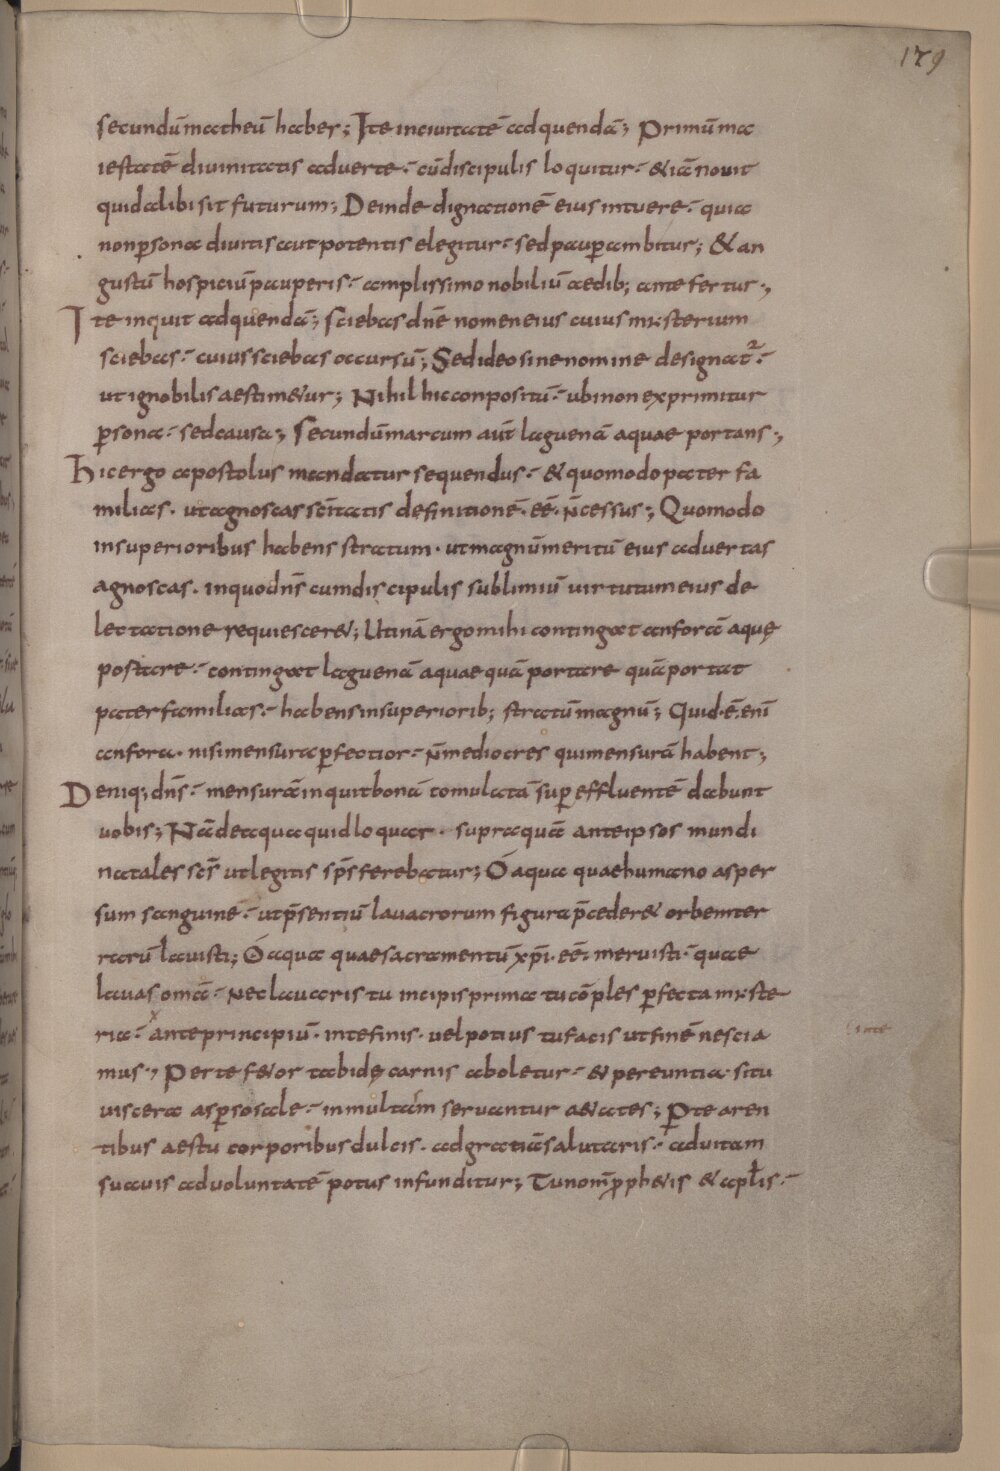 179
secundū matheū haber; Ite inciuitatē ad quendā; Primū ma
iestatē diuinitatis aduerte· cū discipulis loquitur· & iā nouit
quid alibi sit futurum; Deinde dignationē eius intuere· quia
non p̱sona diuitis aut potentis elegitur· sed paup̱ ambitur; & an
gustū hospiciū pauperis· amplissimo nobiliū aedib; ante fertur·,
Ite inquit ad quendā; Sciebas dn̄e nomen eius cuius mysterium
sciebas· cuius sciebas occursū; Sed ideo sine nomine designat᷑·
ut ignobilis aestim&ur; Nihil hic conpositū· ubi non exprimitur
p̱sona· sed causa; Secundū marcum aūt laguenā aquae portans·,
Hic ergo apostolus mandatur sequendus· & quomodo pater fa
milias· ut agnoscas sc̄itatis definitionē· ēē· n̄cessus·, Quomodo
in superioribus habens stratum· ut magnū meritū eius aduertas
agnoscas· in quo dn̄s cum discipulis sublimiū uirtutum eius de
lectatione requiescer&; Utinā ergo mihi contingat anforā aquę
postare· contingat laguenā aquae quā portare quā portat
pater familias· habens in superiorib; stratū magnū; Quid· ē· enī
anfora· nisi mensura p̱fectior· n̄ mediocres qui mensurā habent·,
Deniq; dn̄s· mensurā inquit bonā comulatā sup̱ effluentē dabunt
uobis; Nā de aqua quid loquar· supra quā ante ipsos mundi
natales sc̄s ut legitis sp̄s ferebatur; Ó aqua quae humano asper
sum sanguine· ut p̄sentiū lauacrorum figura p̄ceder& orbem ter
rarū lauisti; Ó aqua quae sacramentū xp̄i· ēē· meruisti· quae
lauas omā· nec lauaris tu incipis prima tu cōples p̱fecta myste
ria· ante principiū· in te finis· uel potius tu facis ut finē nescia
mus·, Per te f&or tabidę carnis aboletur· & pereuntia situ
uiscera asp̱so sale· in multam seruantur a&ates; P̱ te aren
tibus aestu corporibus dulcis· ad gratiā salutaris· ad uitam
suauis ad uoluntatē potus infunditur; Tu nom̄ p̱ph&is & ap̄lis·